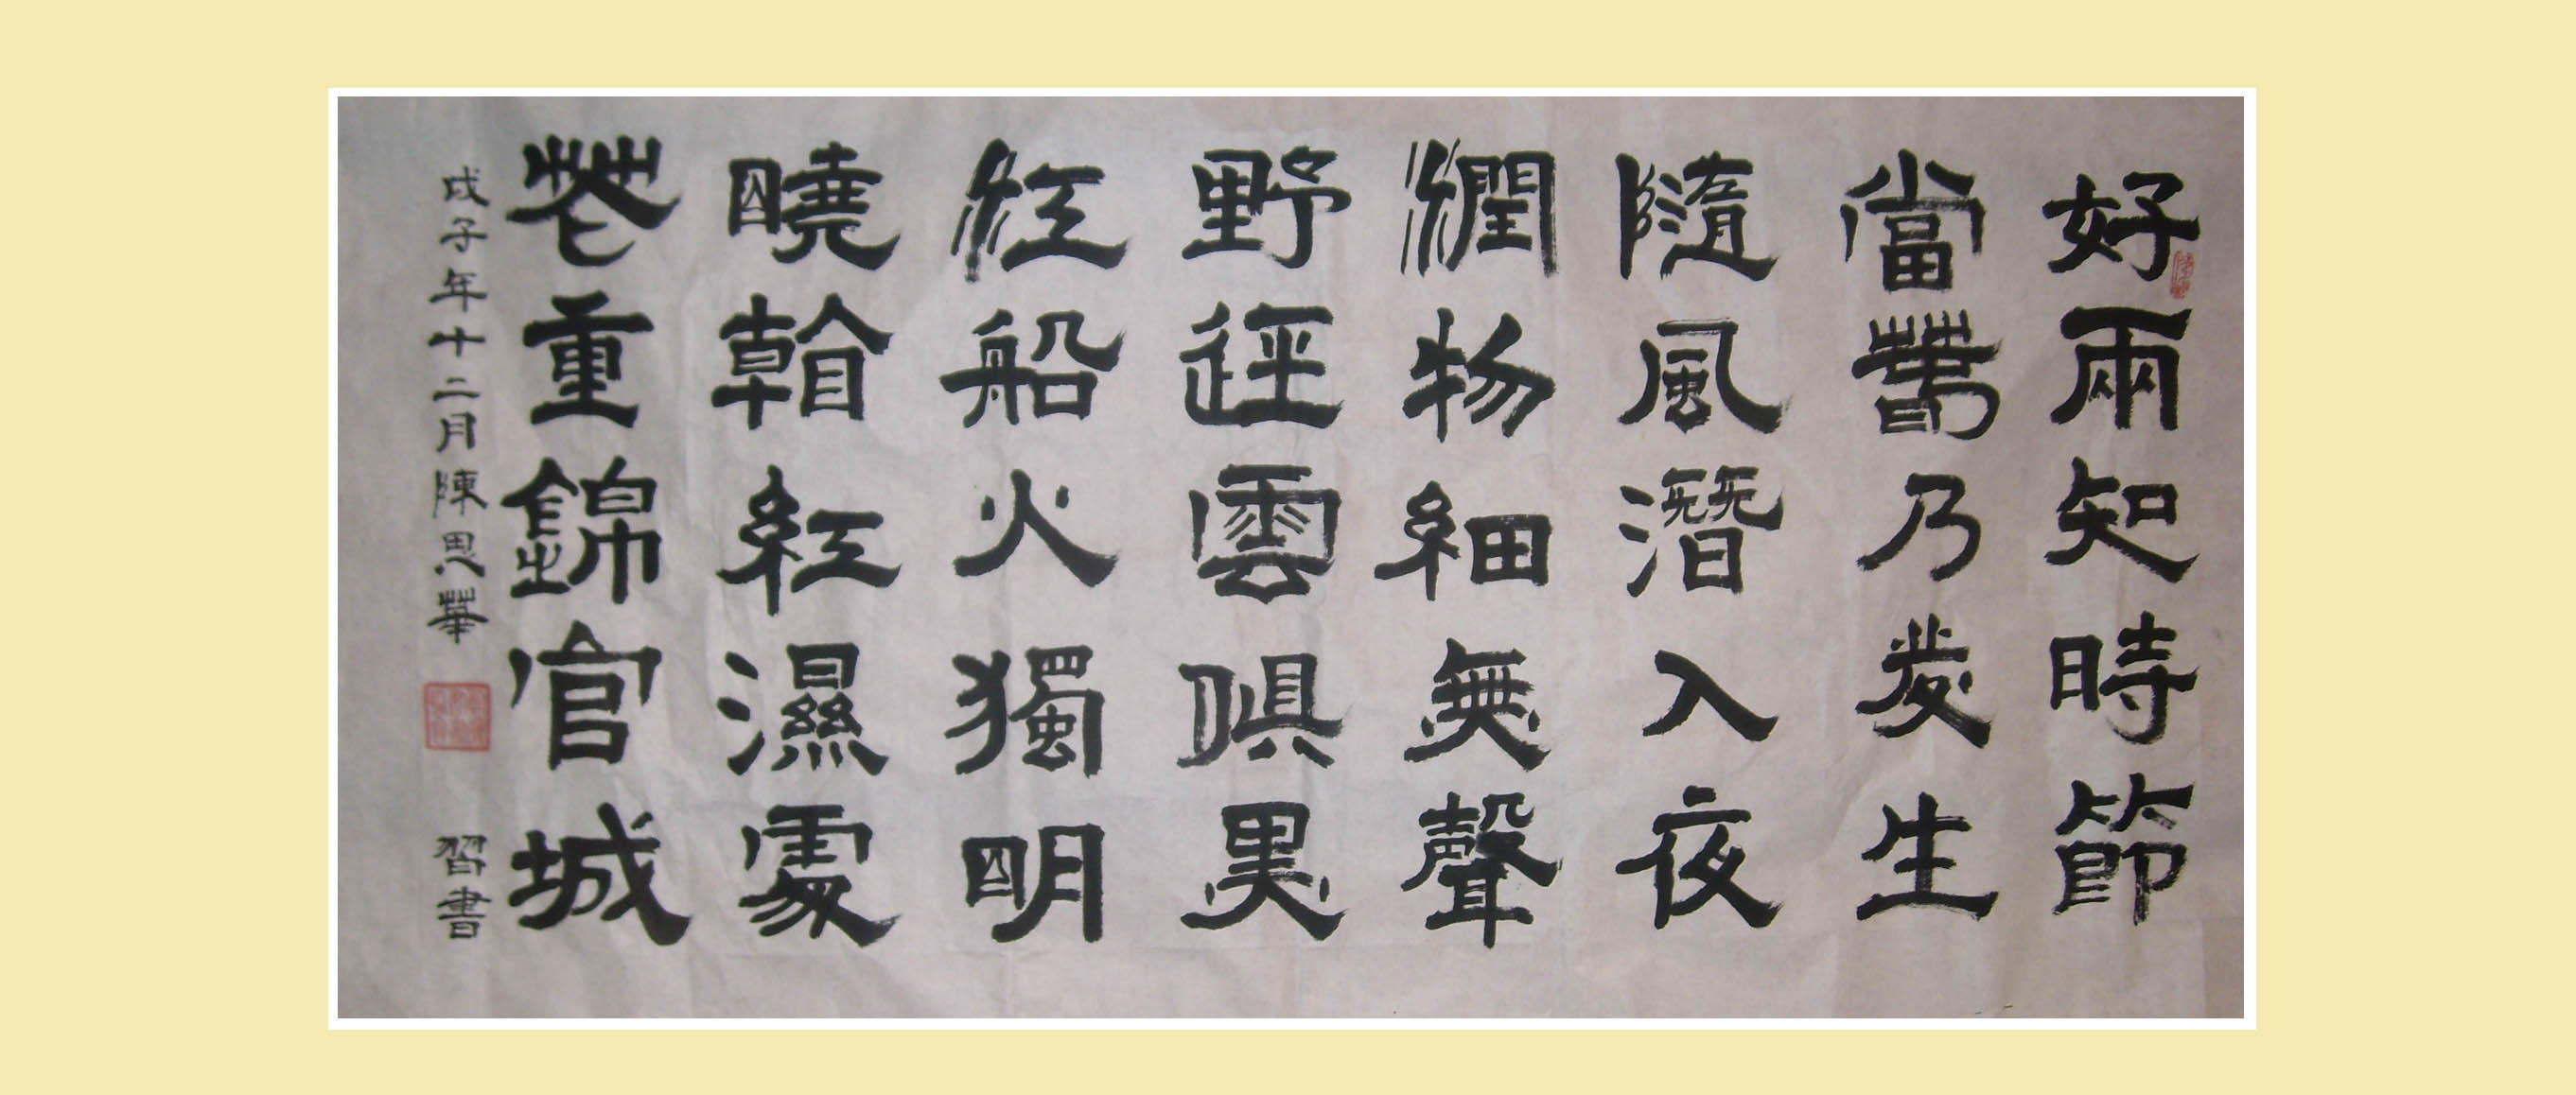 好雨知時節
當春乃發生
隨風潛入夜
潤物細無聲
野徑雲俱黑
江船火獨明
曉看紅濕處
花重錦官城
戊子年十二月陳思華 習書